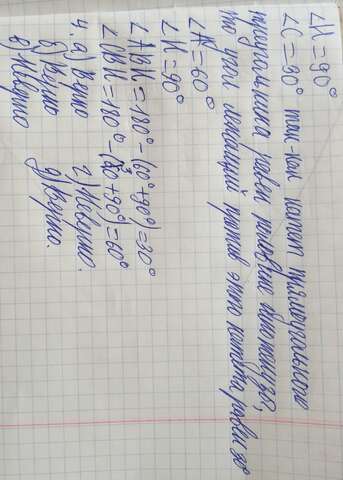 ∠H=90°
∠C=30° так-как катит прямоугольного
треугольника равен половине гипотенузы,
то угол лежащий против этого катета равен 30°
∠A=60°
∠H=90°
∠ABH=180°-(60°+90°)=30°
∠CBH=180°-(30+90°)=60°
4. а) Верно г.) Неверно.
б) Верно д) Верно.
в) Неверно